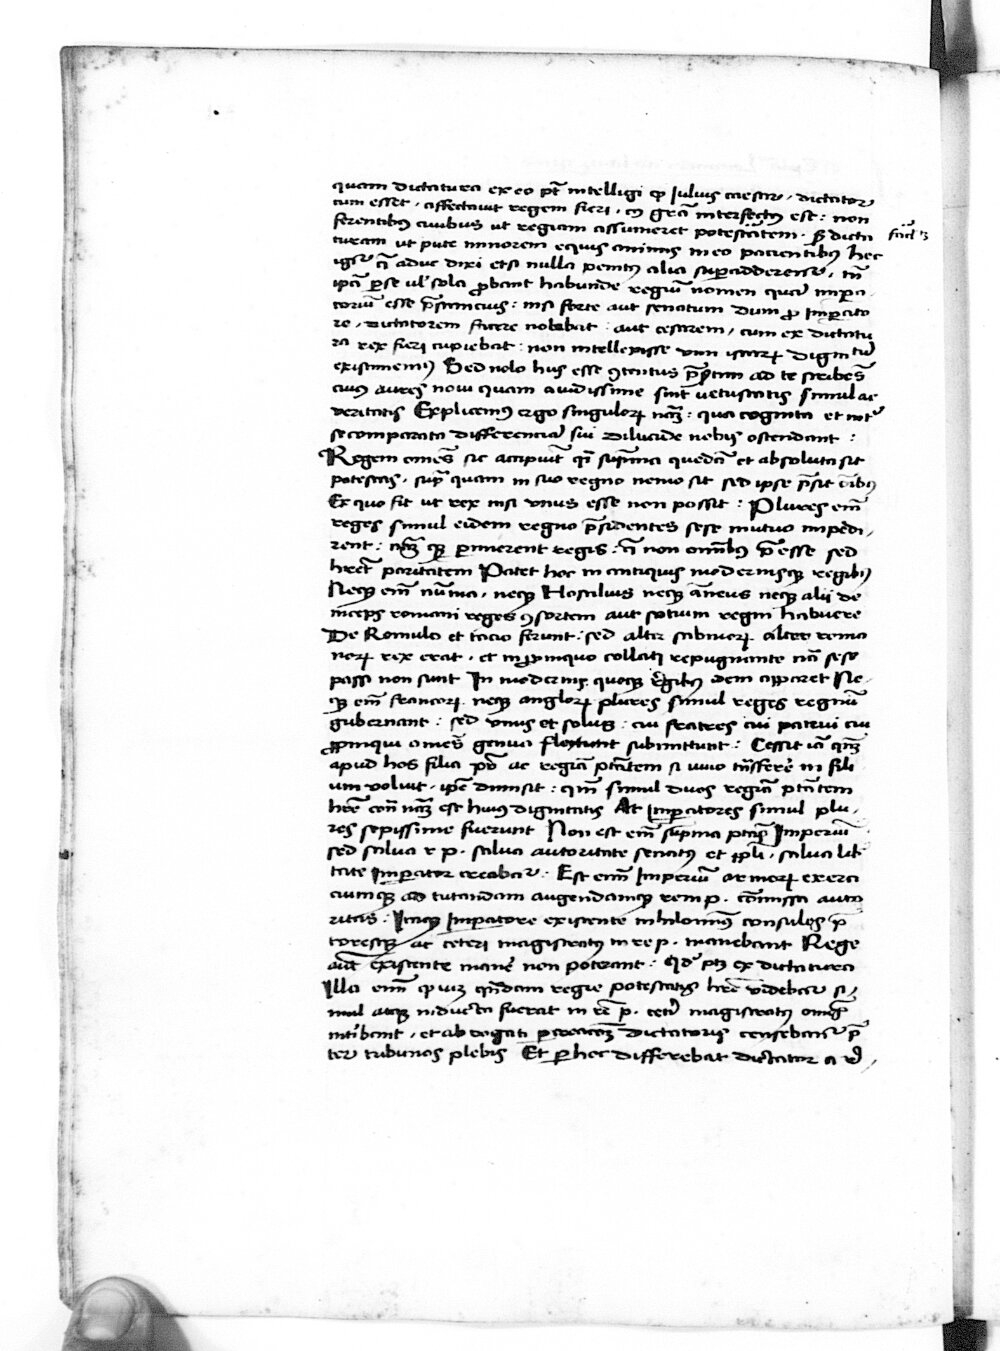 quam dictatura ex eo pt̄ intelligi ꝙ Julius caesar, dictator
cum esset, affectauit regem fieri, et gr̄a interfectus est: non
ferentibus ciuibus ut regiam assumeret potestatem. Sꝫ dicta
turam ut pute minorem equis animis in eo pacientibus hec
igr̄ que adue dixi etsi nulla penitus alia superadderentur, tn̄
ipsa per se uel sola probant habunde regium nomen quam impera
torium esse prestancius: nisi forte aut senatum dum pro Imperato
re, dictatorem facere nolebat: aut cesarem, cum ex dictatu
ra rex fieri cupiebat: non intellexisse uim istarum dignitatum
existimemus Sed nolo hiis esse contentus presertim ad te scribens
cuius aures noui quam auidissime sint uetustatis simul ac
ueritatis Explicemus ergo singulorum naturam: qua cognita et inter
se comparata differenciam sui dilucide nobis ostendant:
Regem omnes sic accipiunt quasi summa quedam et absoluta sit
potestas, supra quam in suo regno nemo sit sed ipse presit omnibus
Ex quo fit ut rex nisi unus esse non possit: Plures enim
reges simul eidem regno presidentes sese mutuo impedi,
rent: neque permaneret regis: non omnibus preesse sed
haberet paritatem Patet hoc in antiquis modernisque regibus
Neque enim numa, neque Hostilius neque ancus neque alii de
inceps romani reges consortem aut sotium regni habuere
De Romulo et tacio ferunt: sed alter sabinorum alter roma
norum rex erat, et in propinquo collati repugnante natura sese
passi non sunt In modernis quoque regibus idem apparet Ne,
que enim francorum neque anglorum plures simul reges regnum
gubernant: sed unus et solus: cui fratres cui patrui cui
propinqui omnes genua flectunt submittunt: Cessit iam quidem
apud hos filio pater ac regiam potestatem si uiuo transferre in fili
um uoluit, ipse dimisit: quoniam simul duos regiam potestatem
habere contra naturam est huius dignitatis At Imperatores simul plu,
res sepissime fuerunt Non est enim suprema potestas Imperium
sed salua r p. salua autoritate senatus et populi, salua liber
tate Imperator creabatur: Est enim Imperium armorum exerci
ciumque ad tutandam augendamque rem p. commissa auto
ritas: Itaque Imperatore existente nihilominus consules pre
toresque ac ceteri magistratus in re p. manebant Rege
autem existente manere non poterant: Quod patet ex dictatura
Illa enim ꝙ uim quandam regie potestatis habere uidebatur si,
mul atque inducta fuerat in re p. ceteri magistratus omnes
intibant, et abrogati per creationem dictatoris censebantur pre
ter tribunos plebis Et per hoc differebat dictator a